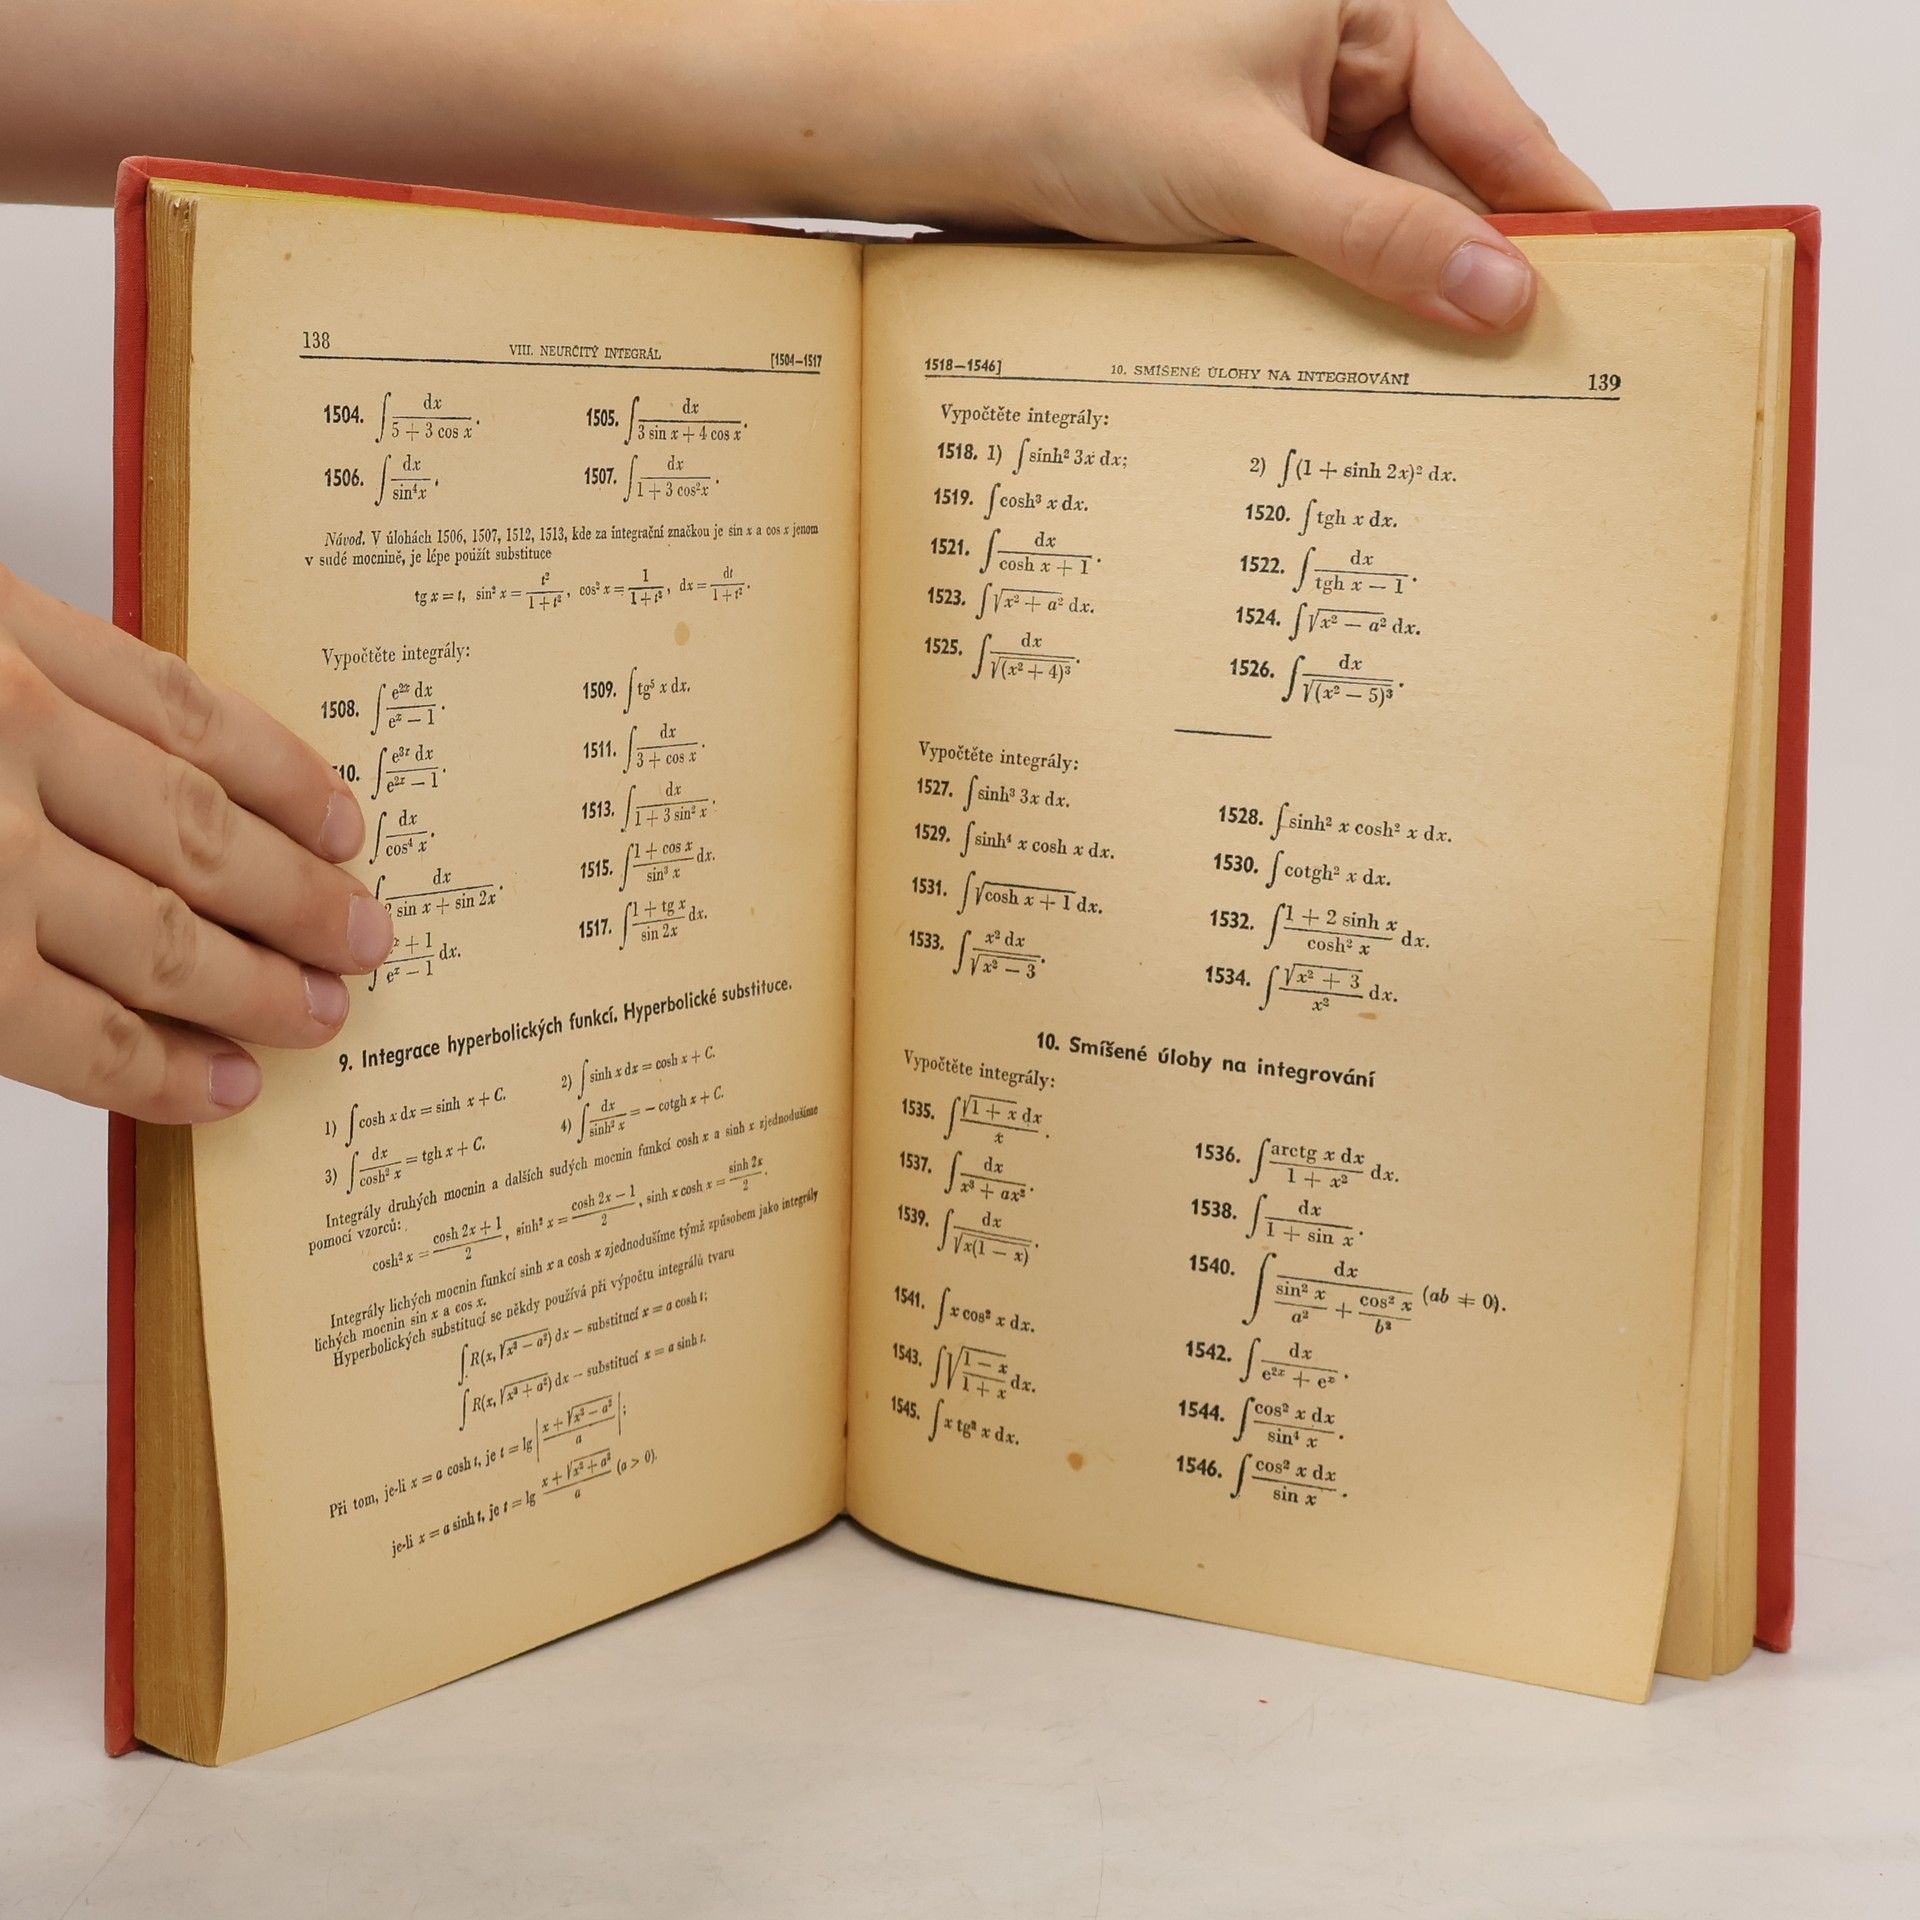 138 VIII. NEURČITÝ INTEGRÁL [1504—1517
1504. ∫ dx / (5 + 3 cos x). 1505. ∫ dx / (3 sin x + 4 cos x).
1506. ∫ dx / sin⁴x. 1507. ∫ dx / (1 + 3 cos²x).
Návod. V úlohách 1506, 1507, 1512, 1513, kde za integrační značkou je sin x a cos x jenom
v sudé mocnině, je lépe použít substituce
tg x = t, sin² x = t² / (1 + t²), cos² x = 1 / (1 + t²), dx = dt / (1 + t²).
Vypočtěte integrály:
1508. ∫ e²ˣ dx / (eˣ − 1). 1509. ∫ tg⁵ x dx.
10. ∫ e³ˣ dx / (e²ˣ − 1). 1511. ∫ dx / (3 + cos x).
∫ dx / cos⁴ x. 1513. ∫ dx / (1 + 3 sin² x).
∫ dx / (2 sin x + sin 2x). 1515. ∫ (1 + cos x) / sin³ x dx.
∫ (eˣ + 1) / (eˣ − 1) dx. 1517. ∫ (1 + tg x) / sin 2x dx.
9. Integrace hyperbolických funkcí. Hyperbolické substituce.
1) ∫ cosh x dx = sinh x + C. 2) ∫ sinh x dx = cosh x + C.
3) ∫ dx / cosh² x = tgh x + C. 4) ∫ dx / sinh² x = − cotgh x + C.
Integrály druhých mocnin a dalších sudých mocnin funkcí cosh x a sinh x zjednodušíme
pomocí vzorců:
cosh² x = (cosh 2x + 1) / 2, sinh² x = (cosh 2x − 1) / 2, sinh x cosh x = sinh 2x / 2.
Integrály lichých mocnin funkcí sinh x a cosh x zjednodušíme týmž způsobem jako integrály
lichých mocnin sin x a cos x.
Hyperbolických substitucí se někdy používá při výpočtu integrálů tvaru
∫ R(x, √(x² − a²)) dx — substitucí x = a cosh t;
∫ R(x, √(x² + a²)) dx — substitucí x = a sinh t.
Při tom, je-li x = a cosh t, je t = lg |(x + √(x² − a²)) / a|;
je-li x = a sinh t, je t = lg (x + √(x² + a²)) / a (a > 0).
1518—1546] 10. SMÍŠENÉ ÚLOHY NA INTEGROVÁNÍ 139
Vypočtěte integrály:
1518. 1) ∫ sinh² 3x dx; 2) ∫ (1 + sinh 2x)² dx.
1519. ∫ cosh³ x dx. 1520. ∫ tgh x dx.
1521. ∫ dx / (cosh x + 1). 1522. ∫ dx / (tgh x − 1).
1523. ∫ √(x² + a²) dx. 1524. ∫ √(x² − a²) dx.
1525. ∫ dx / √((x² + 4)³). 1526. ∫ dx / √((x² − 5)³).
Vypočtěte integrály:
1527. ∫ sinh³ 3x dx. 1528. ∫ sinh² x cosh² x dx.
1529. ∫ sinh⁴ x cosh x dx. 1530. ∫ cotgh² x dx.
1531. ∫ √(cosh x + 1) dx. 1532. ∫ (1 + 2 sinh x) / cosh² x dx.
1533. ∫ x² dx / √(x² − 3). 1534. ∫ √(x² + 3) / x² dx.
10. Smíšené úlohy na integrování
Vypočtěte integrály:
1535. ∫ √(1 + x) dx / x. 1536. ∫ arctg x dx / (1 + x²) dx.
1537. ∫ dx / (x³ + ax²). 1538. ∫ dx / (1 + sin x).
1539. ∫ dx / √(x(1 − x)). 1540. ∫ dx / (sin² x / a² + cos² x / b²) (ab ≠ 0).
1541. ∫ x cos² x dx. 1542. ∫ dx / (e²ˣ + eˣ).
1543. ∫ √((1 − x) / (1 + x)) dx. 1544. ∫ cos² x dx / sin⁴ x.
1545. ∫ x tg² x dx. 1546. ∫ cos² x dx / sin x.